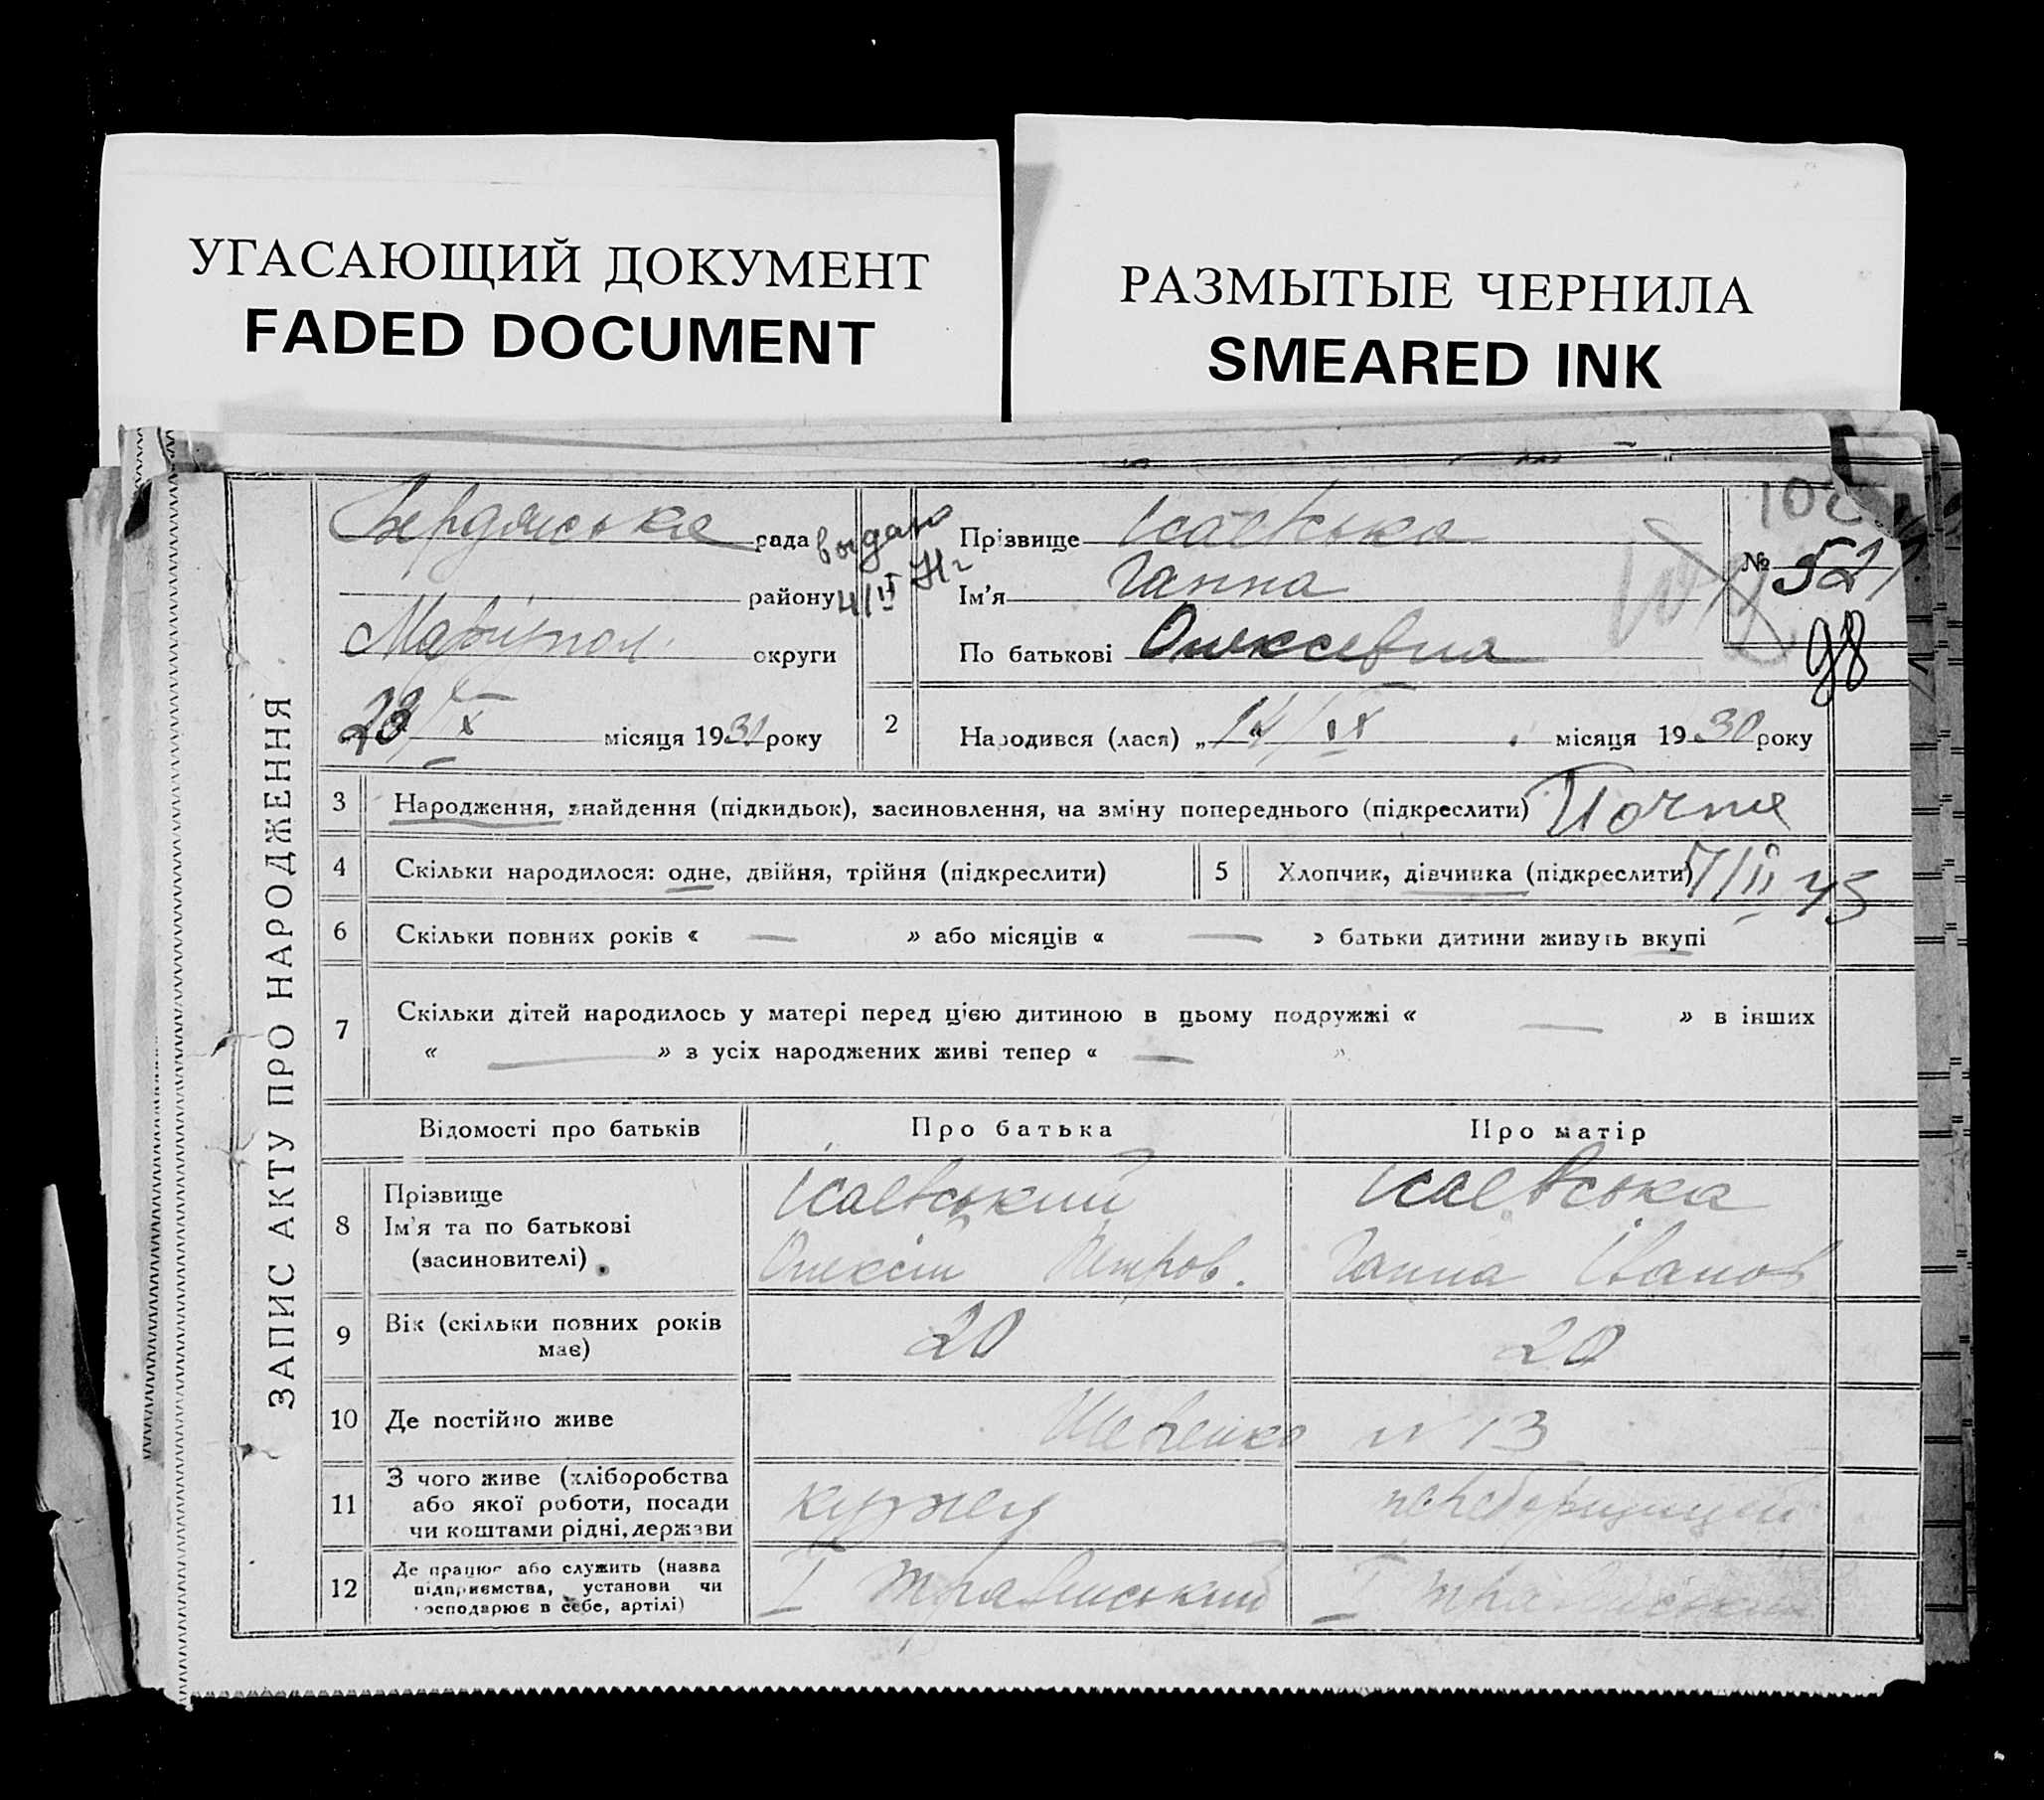 УГАСАЮЩИЙ ДОКУМЕНТ
FADED DOCUMENT
РАЗМЫТЫЕ ЧЕРНИЛА
SMEARED INK
ЗАПИС АКТУ ПРО НАРОДЖЕННЯ
Бердянська рада
району
Маріупол. округи
місяця 19 року
выдано
Прізвище Ісаєвська
Ім'я Ганна
По батькові Олексєевна
№ 521
98
2 Народився (лася) „14/IX місяця 1930 року
3 Народження, знайдення (підкидьок), засиновлення, на зміну попереднього (підкреслити)
4 Скільки народилося: одне, двійня, трійня (підкреслити)
5 Хлопчик, дівчинка (підкреслити) 7/II 43
6 Скільки повних років « — » або місяців « — » батьки дитини живуть вкупі
7 Скільки дітей народилось у матері перед цією дитиною в цьому подружжі « — » в інших
« — » з усіх народжених живі тепер « — »
Відомості про батьків Про батька Про матір
8 Прізвище Ісаєвський Ісаєвська
Ім'я та по батькові Олексій Петров. Ганна Іванов
(засиновителі)
9 Вік (скільки повних років 20 20
має)
10 Де постійно живе Шевченко № 13
11 З чого живе (хліборобства
або якої роботи, посади
чи коштами рідні, держави
12 Де працює або служить (назва
підприємства, установи чи
господарює в себе, артілі)